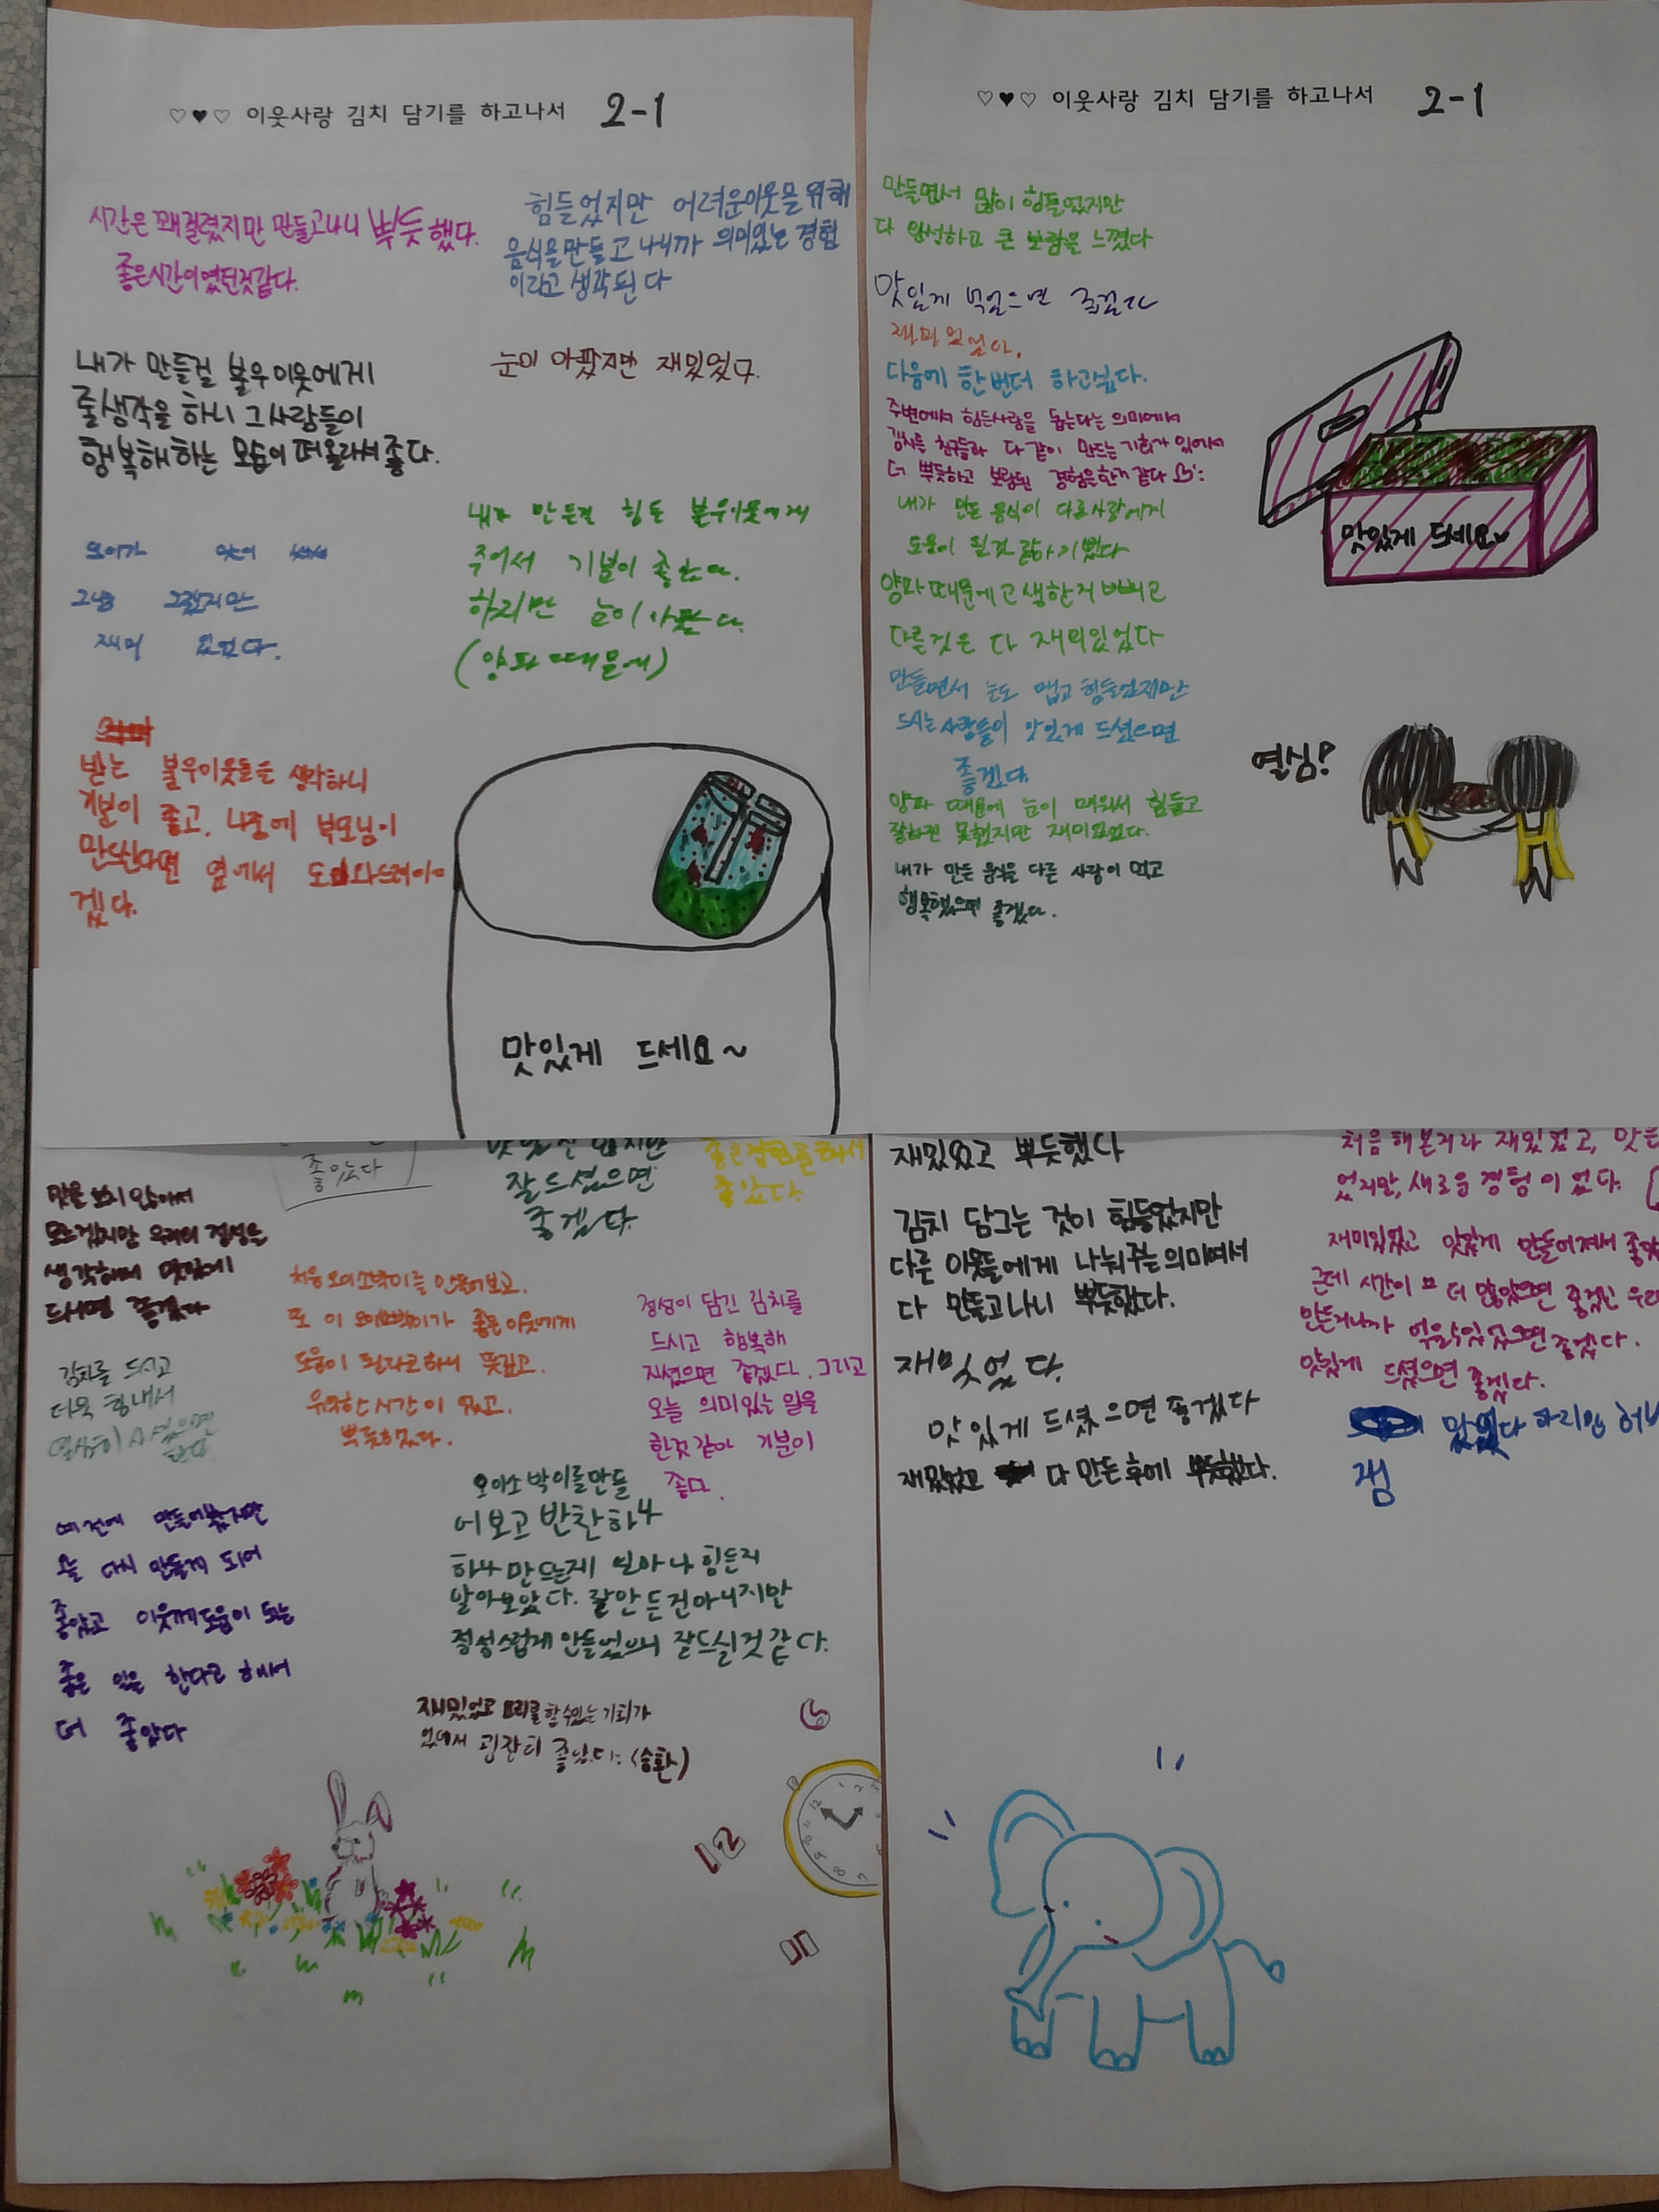 ♡♥♡ 이웃사랑 김치 담기를 하고나서 2-1
시간은 꽤걸렸지만 만들고나니 뿌듯했다.
좋은시간이였던것같다.
힘들었지만 어려운이웃을위해
음식을만들고 나니까 의미있는 경험
이라고 생각된다
내가 만들걸 불우이웃에게
줄생각을 하니 그사람들이
행복해하는 모습이 떠올라서좋다.
눈이 아팠지만 재밌었다.
내가 만든걸 힘든 불우이웃에게
주어서 기분이 좋았다.
하지만 눈이 아팠다.
(양파 때문에)
오이가
그냥 그랬지만
재미 있었다.
받는 불우이웃들을 생각하니
기분이 좋고, 나중에 부모님이
만드신다면 옆에서 도와드려야
겠다.
맛있게 드세요~
♡♥♡ 이웃사랑 김치 담기를 하고나서 2-1
만들면서 많이 힘들었지만
다 완성하고 큰 보람을 느꼈다
맛있게 먹었으면 좋겠다
재미있었다.
다음에 한번더 하고싶다.
주변에서 힘든사람을 돕는다는 의미에서
김치를 친구들과 다 같이 만드는 기회가 있어서
더 뿌듯하고 보람된 경험을한거 같다
내가 만든 음식이 다른사람에게
도움이 될것 같아 기뻤다
양파때문에 고생한거 빼고
다른것은 다 재미있었다
만들면서 눈도 맵고 힘들었지만
드시는 사람들이 맛있게 드셨으면
좋겠다.
양파 때문에 눈이 매워서 힘들고
잘하진 못했지만 재미있었다.
내가 만든 음식을 다른 사람이 먹고
행복했으면 좋겠다.
맛있게 드세요~
열심!
좋았다
잘드셨으면
좋겠다.
좋은경험을해서
좋았다.
맛을 보지 않아서
모르겠지만 우리의 정성을
생각하며 맛있게
드시면 좋겠다
처음 오이소박이를 만들어보고,
또 이 오이소박이가 좋은이웃에게
도움이 된다고하니 뜻깊고,
유익한시간이 었고,
뿌듯하였다.
정성이 담긴 김치를
드시고 행복해
지셨으면 좋겠다. 그리고
오늘 의미있는 일을
한것 같아 기분이
좋다.
김치를 드시고
더욱 힘내서
열심히 사셨으면
오이소박이를만들
어보고 반찬하나
하나 만드는게 얼마나 힘든지
알아보았다. 잘만든건아니지만
정성스럽게 만들었으니 잘드실것같다.
예전에 만들어봤지만
오늘 다시 만들게 되어
좋았고 이웃께도움이 되는
좋은 일을 한다고 하니
더 좋았다
재밌었고 요리를 할수있는기회가
있어서 굉장히 좋았다. (승환)
6
12
5
12 1 2 3
재밌었고 뿌듯했다
김치 담그는 것이 힘들었지만
다른 이웃들에게 나눠주는의미여서
다 만들고나니 뿌듯했다.
재밋었다.
맛있게 드셨으면좋겠다
재밌었고 다 만든후에 뿌듯했다.
처음해본거라 재밌었고,
었지만, 새로운 경험이었다.
재미있었고 맛있게 만들어져서
근데 시간이 더 많았으면 좋겠고
좋겠다.
맛있게 드셨으면 좋겠다.